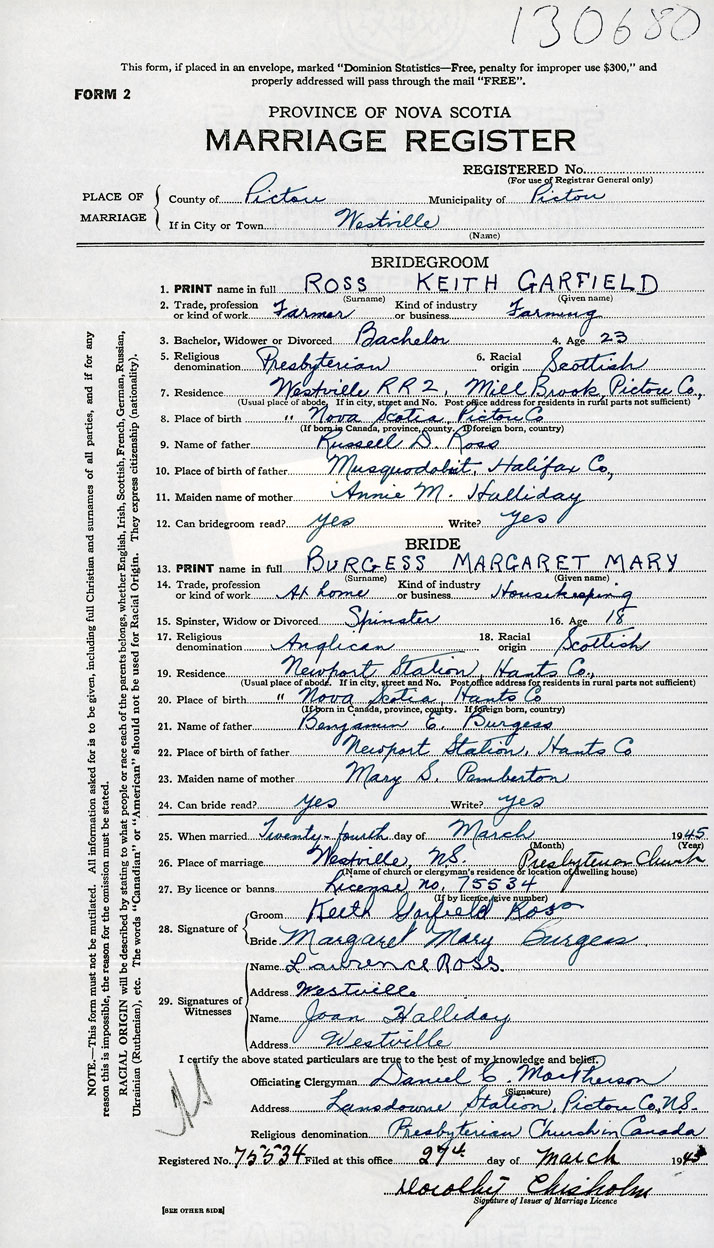 130680
This form, if placed in an envelope, marked "Dominion Statistics—Free, penalty for improper use $300," and
properly addressed will pass through the mail "FREE".
FORM 2
PROVINCE OF NOVA SCOTIA
MARRIAGE REGISTER
REGISTERED No.
(For use of Registrar General only)
PLACE OF MARRIAGE
County of Pictou Municipality of Pictou
If in City or Town Westville
(Name)
BRIDEGROOM
1. PRINT name in full ROSS KEITH GARFIELD
(Surname) (Given name)
2. Trade, profession or kind of work Farmer Kind of industry or business Farming
3. Bachelor, Widower or Divorced Bachelor 4. Age 23
5. Religious denomination Presbyterian 6. Racial origin Scottish
7. Residence Westville RR2, Mill Brook, Pictou Co.,
(Usual place of abode. If in city, street and No. Post office address for residents in rural parts not sufficient)
8. Place of birth " Nova Scotia, Pictou Co
(If born in Canada, province, county. If foreign born, country)
9. Name of father Russell D. Ross
10. Place of birth of father Musquodobit, Halifax Co,
11. Maiden name of mother Annie M. Halliday
12. Can bridegroom read? yes Write? yes
BRIDE
13. PRINT name in full BURGESS MARGARET MARY
(Surname) (Given name)
14. Trade, profession or kind of work At home Kind of industry or business Housekeeping
15. Spinster, Widow or Divorced Spinster 16. Age 18
17. Religious denomination Anglican 18. Racial origin Scottish
19. Residence Newport Station, Hants Co.,
(Usual place of abode. If in city, street and No. Post office address for residents in rural parts not sufficient)
20. Place of birth " Nova Scotia, Hants Co
(If born in Canada, province, county. If foreign born, country)
21. Name of father Benjamin E. Burgess
22. Place of birth of father Newport Station, Hants Co
23. Maiden name of mother Mary S. Pemberton
24. Can bride read? yes Write? yes
25. When married Twenty-fourth day of March 1945
(Month) (Year)
26. Place of marriage Westville, N.S. Presbyterian Church
(Name of church or clergyman's residence or location of dwelling house)
27. By licence or banns License no. 75534
(If by licence, give number)
28. Signature of
Groom Keith Garfield Ross
Bride Margaret Mary Burgess
29. Signatures of Witnesses
Name Lawrence Ross.
Address Westville
Name Joan Halliday
Address Westville
I certify the above stated particulars are true to the best of my knowledge and belief.
Officiating Clergyman Daniel C. MacPherson
(Signature)
Address Lansdowne Station, Pictou Co, N.S.
Religious denomination Presbyterian Church in Canada
Registered No. 75534 Filed at this office 27th day of March 1945
Dorothy Chisholm
Signature of Issuer of Marriage Licence
[SEE OTHER SIDE]
NOTE.—This form must not be mutilated. All information asked for is to be given, including full Christian and surnames of all parties, and if for any
reason this is impossible, the reason for the omission must be stated.
RACIAL ORIGIN will be described by stating to what people or race each of the parents belongs, whether English, Irish, Scottish, French, German, Russian,
Ukrainian (Ruthenian), etc. The words "Canadian" or "American" should not be used for Racial Origin. They express citizenship (nationality).